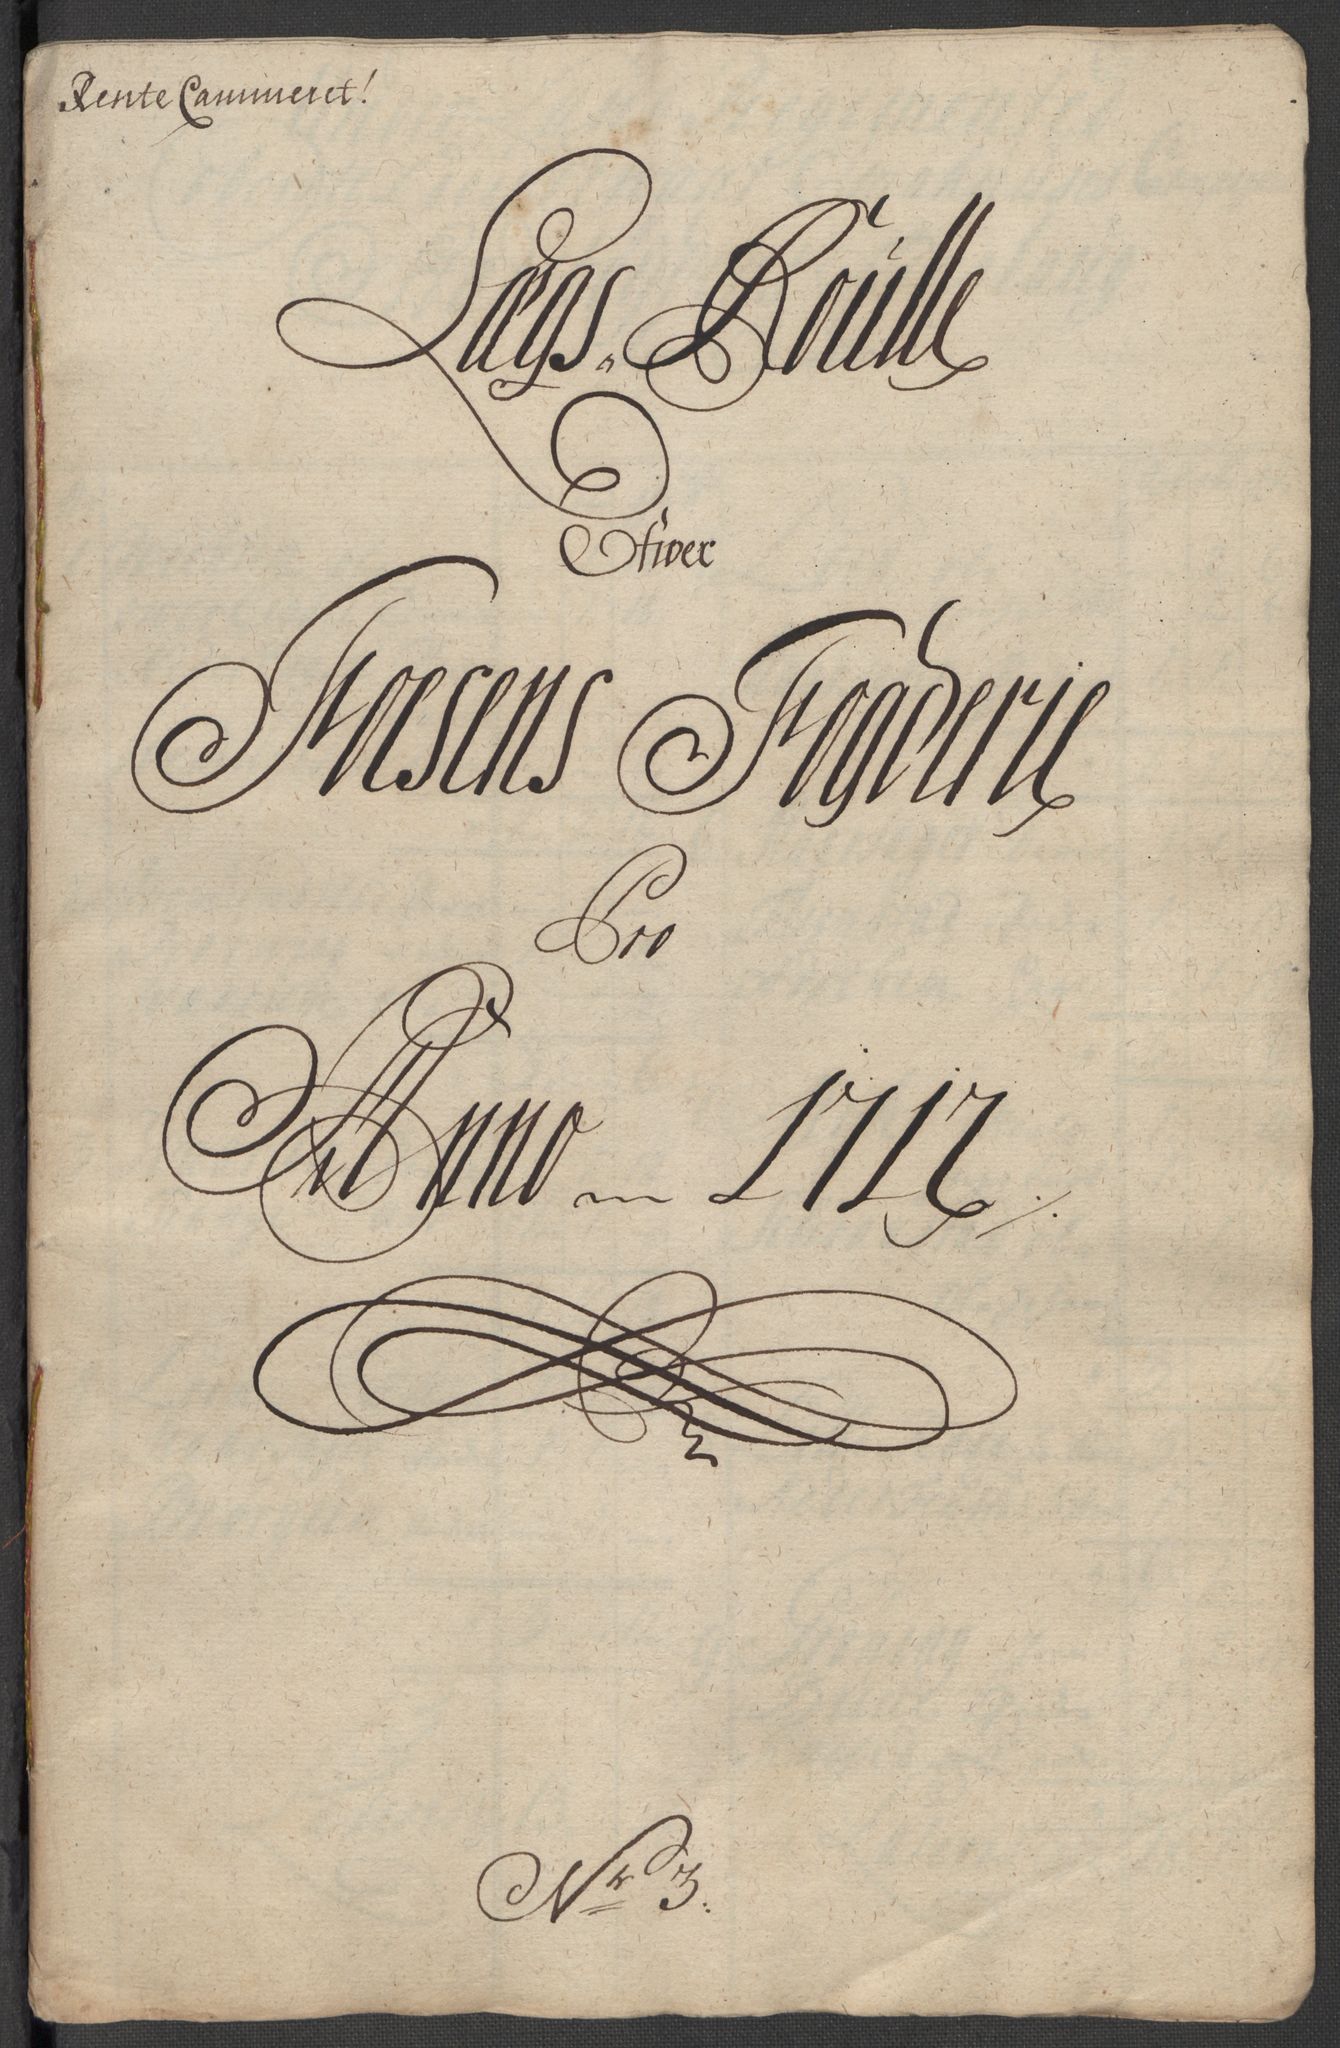 Rente Cammeret!
Lægs, Roulle
Ofwer
Foesens Fogderie
Pro
Anno 1717
Nr 3.